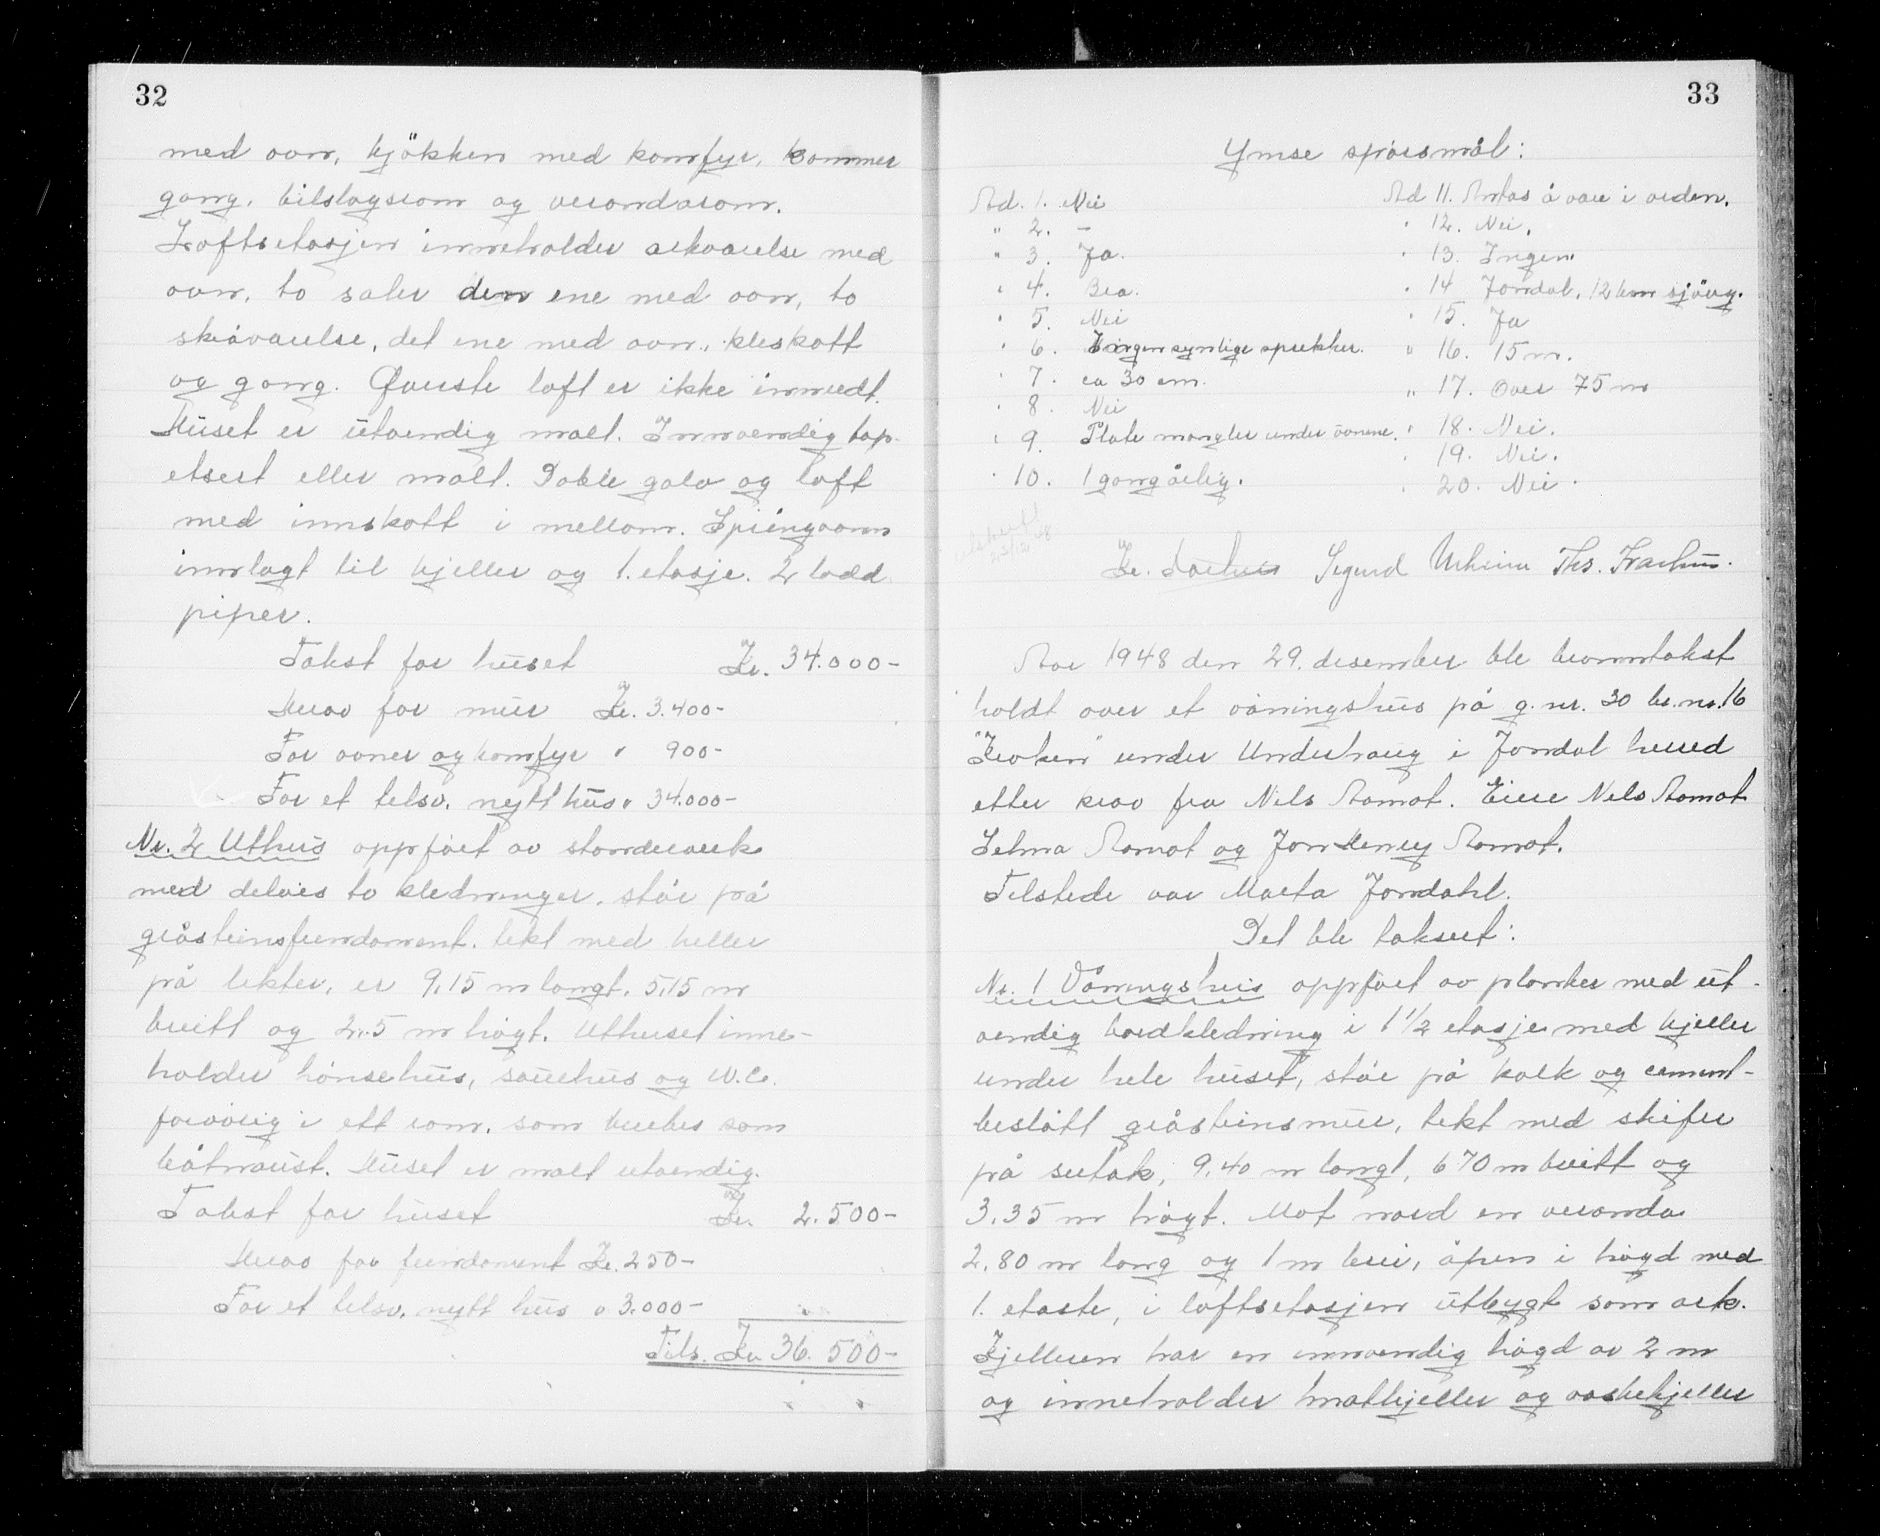 32
med ovn, kjökken med komfyr, kammer
gang, tilslagsrom og verandarom.
Loftsetasjen inneholder arkværelse med
ovn, to saler den ene med ovn, to
skråværelse, det ene med ovn, kleskott
og gang. Øverste loft er ikke innredt.
Huset er utvendig malt. Innvendig tap-
etsert eller malt. Doble golv og loft
med innskott i mellom. Springvann
innlagt til kjeller og 1. etasje. 2 lodd.
piper.
Takst for huset Kr. 34.000-
Herav for mur Kr. 3.400-
For ovner og komfyr " 900-
For et tilsv. nytt hus " 34.000-
Nr. 2 Uthus oppført av stenderverk
med delvis to kledninger, står på
gråsteinsfundament, tekt med heller
på lekter, er 9,15 m langt, 5,15 m
breitt og 2.5 m høgt. Uthuset inne-
holder hønsehus, sauehus og W.C.
forøvrig i ett rom, som brukes som
båtnaust. Huset er malt utvendig.
Takst for huset Kr. 2.500-
Herav for fundament Kr. 250-
For et tilsv. nytt hus " 3.000-
Tils. Kr 36.500-
33
Ymse spørsmål:
Ad. 1. Nei
" 2. -
" 3. Ja.
" 4. Bra.
" 5. Nei
" 6. Ingen synlige sprekker.
" 7. ca 30 cm.
" 8. Nei
" 9. Plate mangler under ovnene.
" 10. 1 gang årlig.
Ad 11. Antas å være i orden.
" 12. Nei.
" 13. Ingen
" 14 Jondal, 12 km sjöveg.
" 15. Ja
" 16. 15 m.
" 17. Over 75 m
" 18. Nei.
" 19. Nei.
" 20. Nei.
utskrift
22/12 48
Sigurd Utheim Ths. Traehus.
Aar 1948 den 29. desember ble branntakst
holdt over et våningshus på g. nr. 30 br. nr. 16
"Kroken" under Underhaug i Jondal herred
etter krav fra Nils Aamot. Eiere Nils Aamot
Selma Aamot og Jon Henry Aamot.
Tilstede var Marta Jondahl.
Det ble taksert:
Nr. 1 Våningshus oppført av planker med ut-
vendig bordkledning i 1 1/2 etasje med kjeller
under hele huset, står på kalk og cement-
beslått gråsteinsmur, tekt med skifer
på sutak, 9,40 m langt, 6 70 m breitt og
3,35 m høgt. Mot nord en veranda
2,80 m lang og 1 m brei, åpen i høgd med
1. etaste, i loftsetasjen utbygt som ark.
Kjelleren har en innvendig høgd av 2 m
og inneholder matkjeller og vaskekjeller